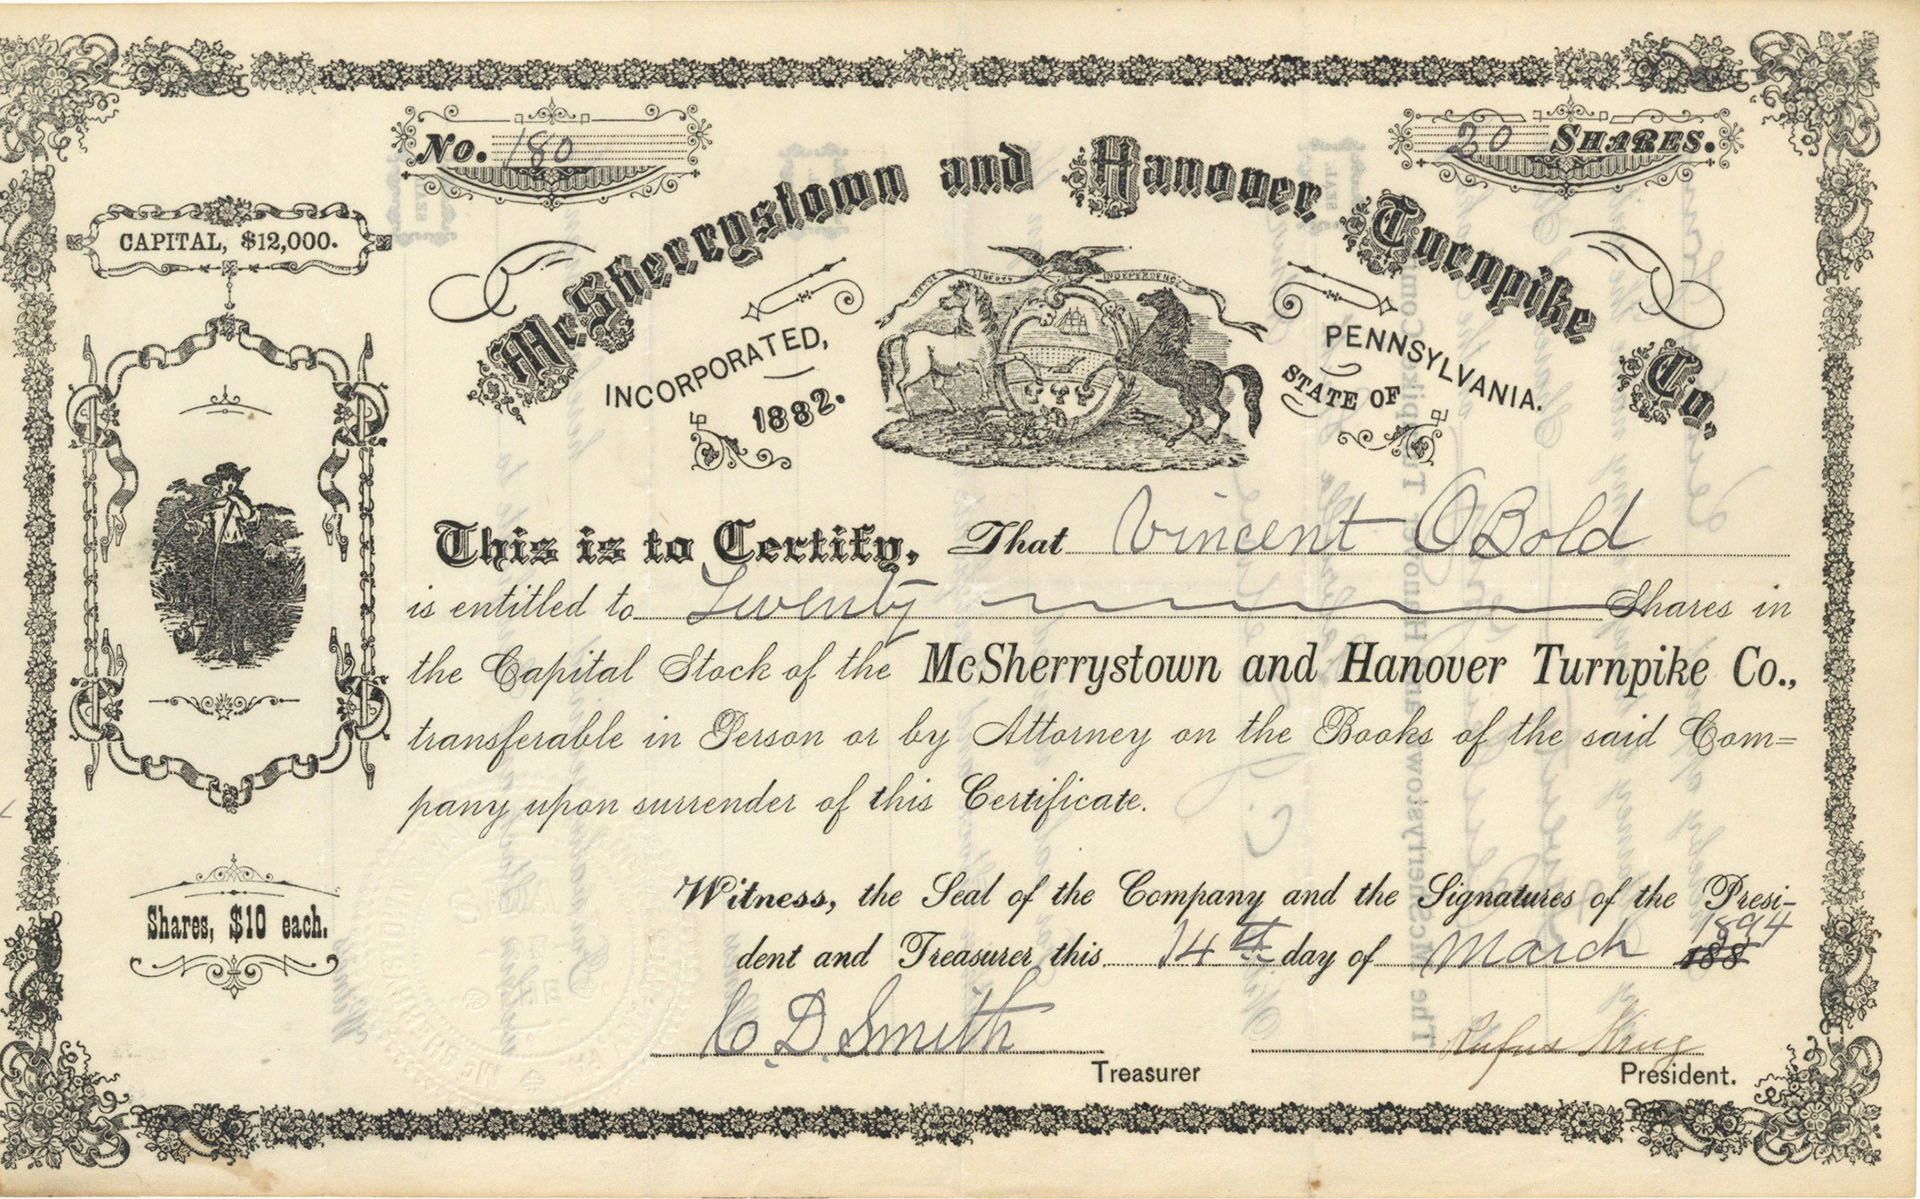 No. 180
20 SHARES.
McSherrystown and Hanover Turnpike Co.
CAPITAL, $12,000.
INCORPORATED, 1882.
VIRTUE LIBERTY INDEPENDENCE
STATE OF PENNSYLVANIA.
This is to Certify, That Vincent OBold
is entitled to Twenty Shares in
the Capital Stock of the McSherrystown and Hanover Turnpike Co.,
transferable in Person or by Attorney on the Books of the said Com=
pany upon surrender of this Certificate.
Shares, $10 each.
Witness, the Seal of the Company and the Signatures of the Presi-
dent and Treasurer this 14th day of March 188 1894
C. D. Smith
Treasurer
Rufus Krug
President.